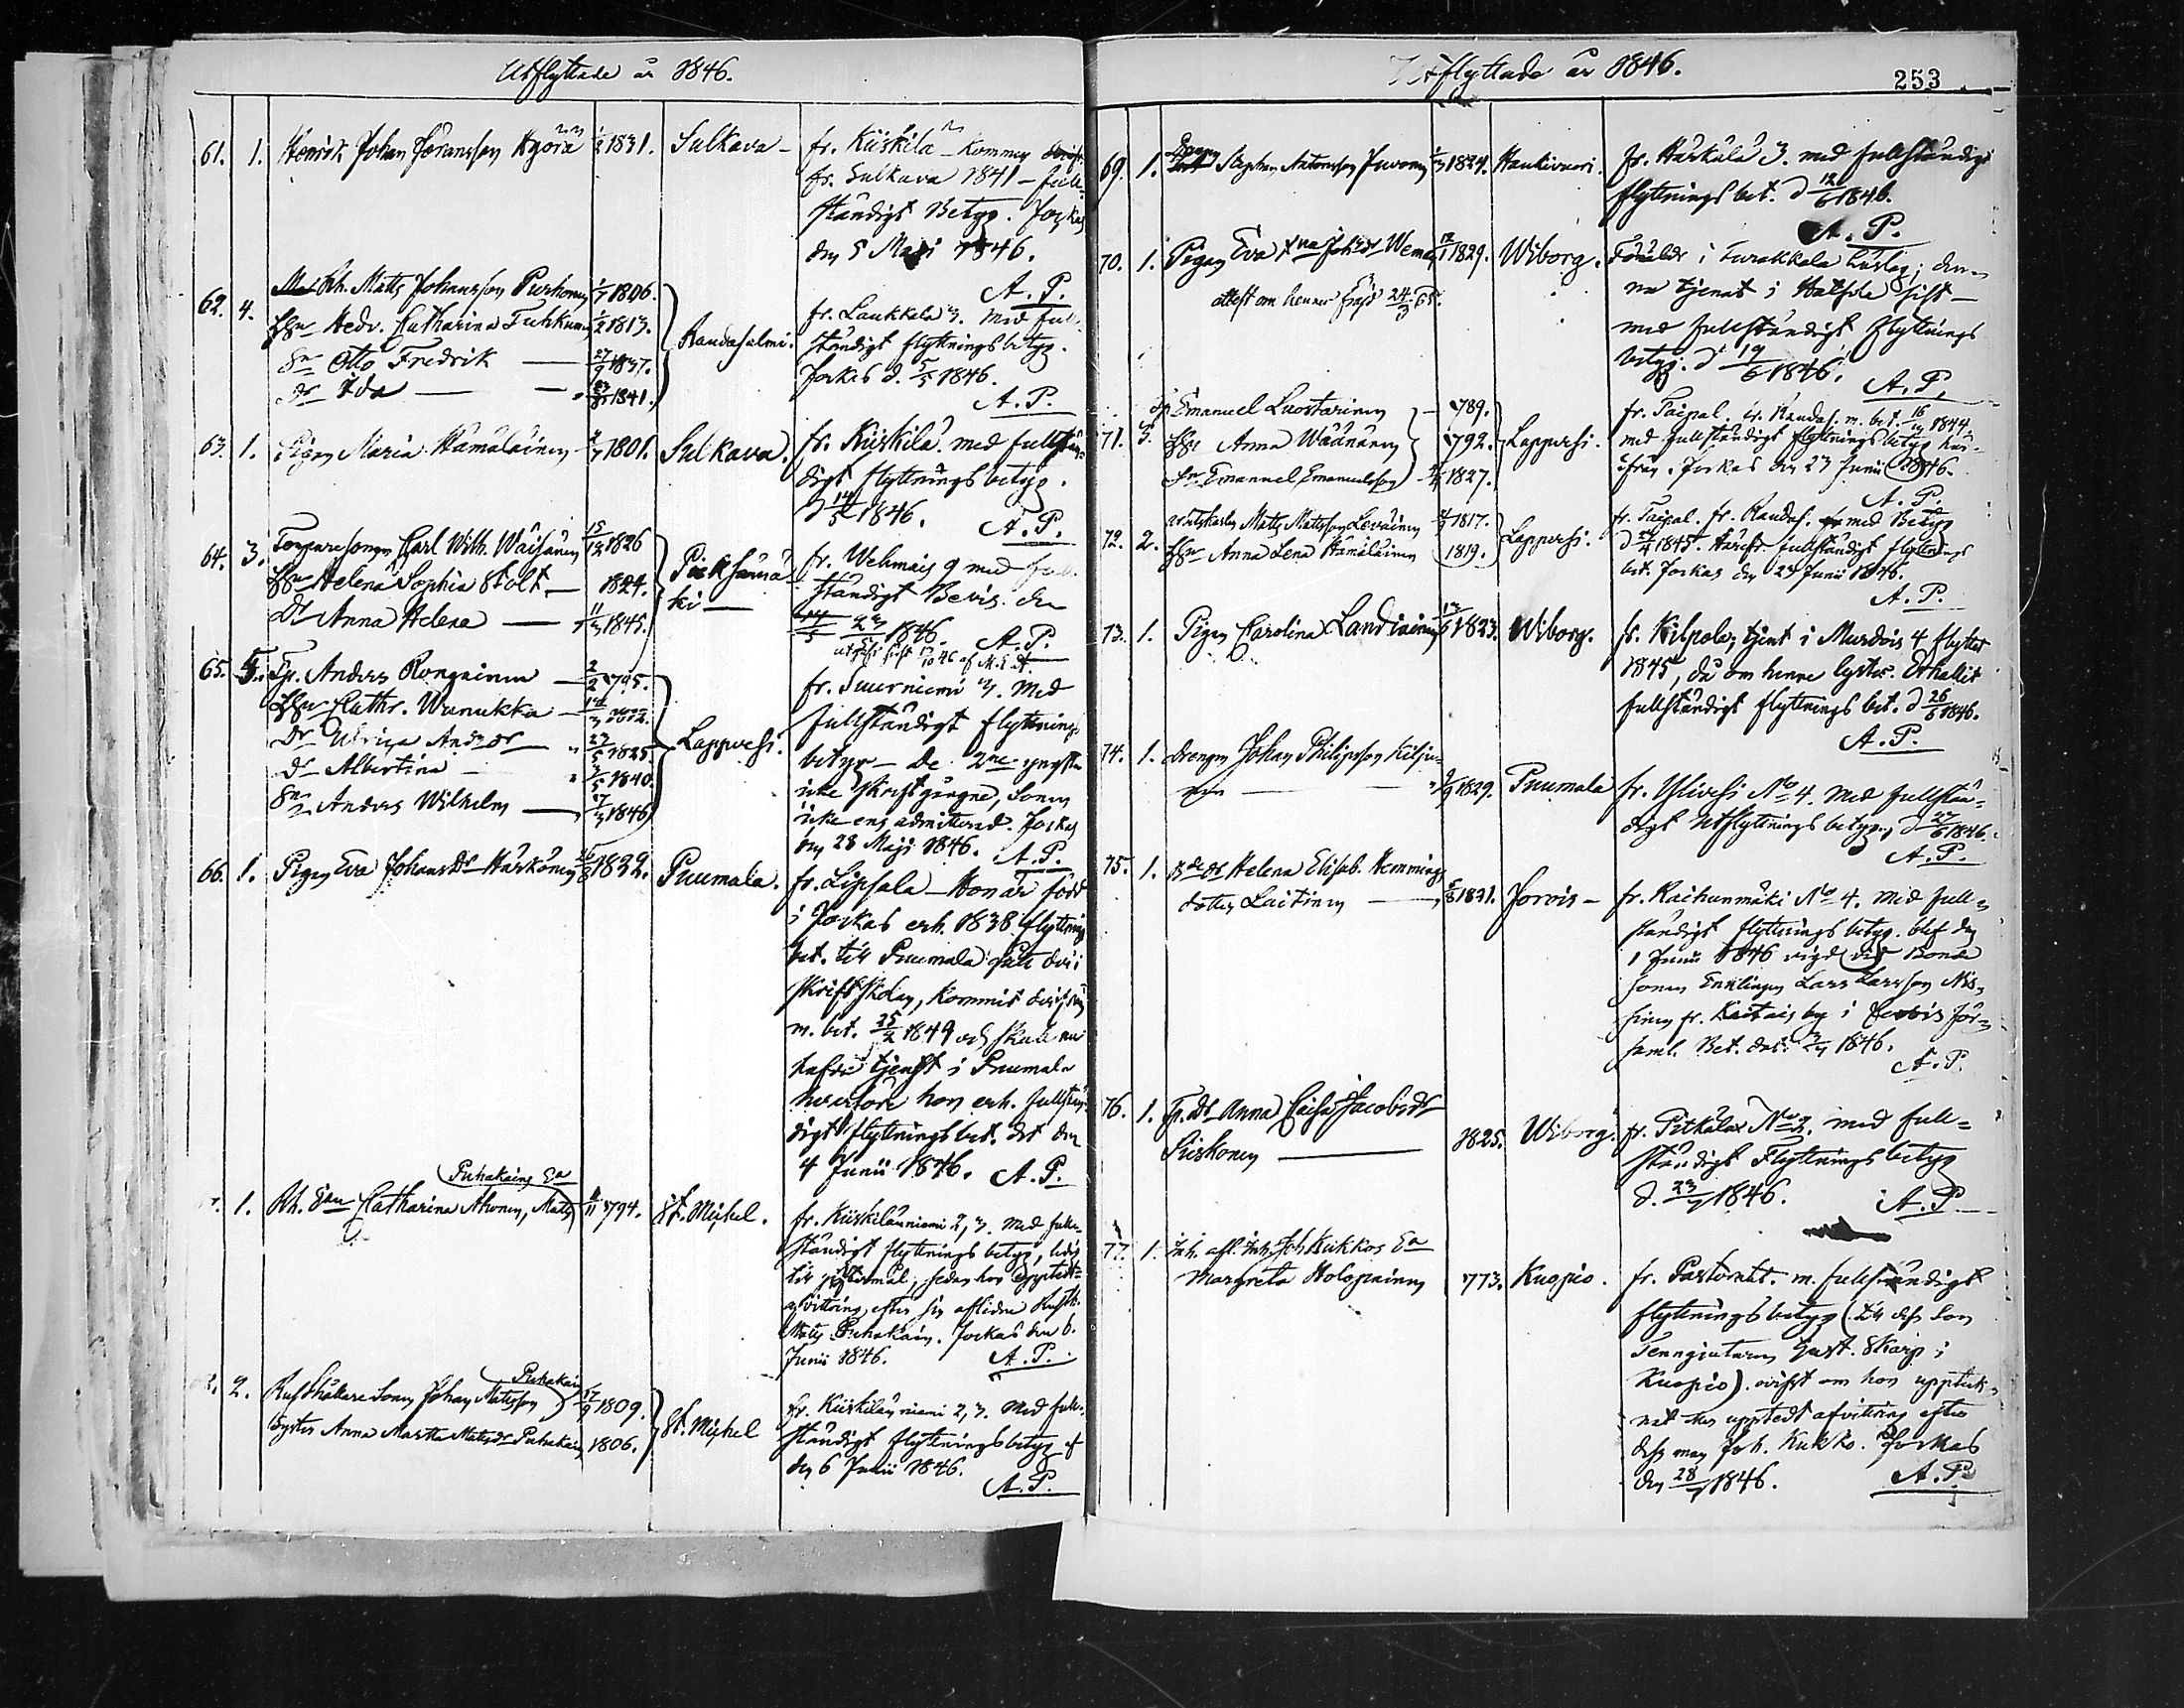 Utflyttade år 1846.
61. 1. Henrik Johan Göransson Hyörä 1/2 1831. Sulkava -
fr. Kiiskilä - Kommen
fr. Sulkava 1841 - full-
ständigt Betyg. Jockas
den 5 Maji 1846.
A. P.
62. 4. Rh. Matts Johansson Purhonen 1/7 1806.
Hedv. Catharina Tuhkunen 1/2 1813.
Sn Otto Fredrik — 27/9 1837.
Dr Ida — 1841.
Randasalmi.
fr. Laukkala 3. med full
ständigt flyttningsbetyg.
Jockas d. 5/5 1846.
A. P.
63. 1. Pigan Maria Hämäläinen 1801. Sulkava.
fr. Kiiskilä med fullstän-
digt flyttningsbetyg.
d 14/5 1846. A. P.
64. 3. Torparesonen Carl Wilh. Wäisänen 15/12 1826
Helena Sophia Stolt — 1824.
Dr Anna Helena — 11/3 1845.
Pieksämä
ki —
fr. Wehmais 9 med full
ständigt Bevis. den
23/5 1846. A. P.
65. 5. Tp. Anders Rongainen 2/2 795.
Cathr. Wanukka — 14/3 802.
Dr Ulrica Andsdr — 23/5 1825.
Dr Albertina — 3/5 1840.
Sn Anders Wilhelm — 17/3 1846
Lappvesi.
fr. Suurniemi 3. Med
fullständigt flyttnings
betyg - De 2ne yngsta
icke skriftgångne, Sonen
icke ens admitterad. Jockas
den 28 Maji 1846. A. P.
66. 1. Pigan Eva Johansdr Härkönen 1832. Puumala.
fr. Lipsala - Hon är född
i Jockas erh. 1838 flyttnings
bet. till Puumala gått der i
Skriftskolan, kommit derifrån
m. bet. 25/2 1849 och skall nu
hafva tjenst i Puumala
hvarföre hon erh. fullstän-
digt flyttningsbet. det den
4 Junii 1846. A. P.
Puhakains Ea
1. Rh. Catharina Ahonen, Matts 11 794. St. Michel.
fr. Kiiskilänniemi 2, 3. Med full-
ständigt flyttningsbetyg, ledig
till giftermål, sedan hon upptedt
afvittring efter sin aflidne
Matts Puhakain. Jockas den 6.
Junii 1846. A. P.
Puhakain
2. Rusthållare Sonen Johan Mattsson 17/9 1809.
Syster Anna Martha Mattsdr Puhakain 1806.
St. Michel
fr. Kiiskilänniemi 2, 3. Med full-
ständigt flyttningsbetyg af
den 6 Junii 1846.
A. P.
Utflyttade år 1846.
253
69. 1. Drengen Stephan Antonsson Juvonen 1824. Haukivuori.
fr. Härkälä 3. med fullständigt
flyttningsbet. d 12/6 1846.
A. P.
70. 1. Pigan Eva Johsdr Weman 12/1 1829. Wiborg.
attest om hennes frejd 24/3 65.
Föräldr i Turakkala denn
na tjenat i sist -
med fullständigt Flyttnings
betyg. d 19/6 1846. A. P.
71. 3. Emanuel Luostarinen — 789.
Anna Wäänänen 792.
Sn Emanuel Emanuelsson 1827.
Lappvesi.
fr. Taipal. fr. Randas. m. bet. 16 1844.
med fullständigt flyttningsbetyg här-
ifrån. Jockas den 23 Junii 1846.
A. P.
72. 2. Matts Mattsson Leväinen 1817.
Anna Lena Hämäläinen 1819.
Lappvesi.
fr. Taipal. fr. Randas. med Betyg
d 24/4 1845. Härifr. fullständigt flyttnings
bet. Jockas den 23 Junii 1846.
A. P.
73. 1. Pigan Carolina Landinen 1823. Wiborg.
fr. Kilpola, tjent i Murdois 4 flyttat
1845, då om henne lystes. Erhållit
fullständigt flyttningsbet. d 26/6 1846.
A. P.
74. 1. Drengen Johan Philipsson Kilju-
nen — 1829. Puumala
fr. Ylivesi No 4. Med fullstän-
digt Utflyttningsbetyg, d 27/6 1846.
A. P.
75. 1. Bdedr Helena Elisab. Hemmings
dotter Laitinen — 1821. Jorois -
fr. Kaihunmäki No 4. Med full-
ständigt flyttningsbetyg. blef den
1 Junii 1846 vigd vid Bonde
sonen Enklingen Lars Larsson Nis-
sinen fr. Kaitais by i Jorois för-
saml. Bet. dat. 3/7 1846.
A. P.
76. 1. Tp. dr Anna Caisa Jacobsdr
Siiskonen — 1825. Wiborg.
fr. Pitkälax No 2. med full-
ständigt Flyttningsbetyg
d. 23/7 1846. A. P.
77. 1. Inh. afl. Inh. Joh Kukkos Ea
Margreta Holopainen 773. Kuopio.
fr. Pastoratet. m. fullständigt
flyttningsbetyg (till dess Son
Tenngjutaren Gust. Skarp i
Kuopio). ovisst om hon upptek-
nat hos upptedt afvittring efter
dess man Joh. Kukko. Jockas
den 28/7 1846. A. P.